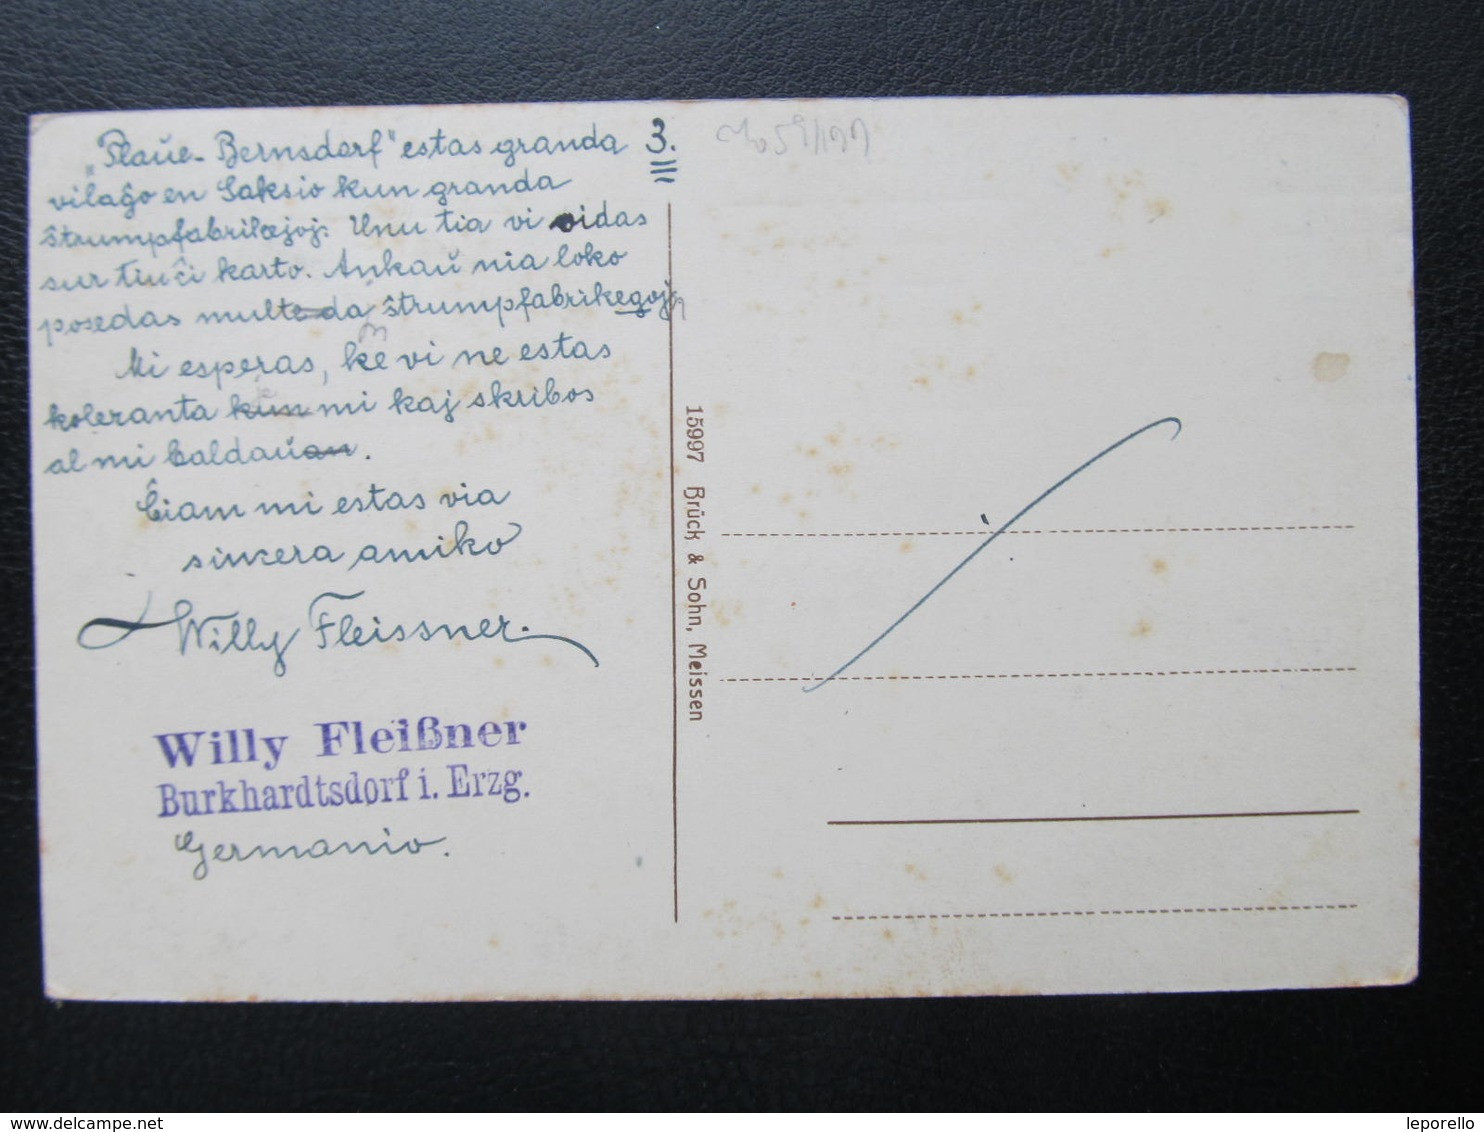 „Plaŭe-Bernsdorf" estas granda 3.
vilaĝo en Saksio kun granda
ŝtrumpfabrikejoj. Unu tia vi vidas
sur tiu ĉi karto. Ankaŭ nia loko
posedas multe da ŝtrumpfabrikegoj
Mi esperas, ke vi ne estas
koleranta kun mi kaj skribos
al mi baldaŭan.
Ĉiam mi estas via
sincera amiko
Willy Fleissner.
Willy Fleißner
Burkhardtsdorf i. Erzg.
Germanio.
15997 Brück & Sohn, Meissen
www.delcampe.net
leporello